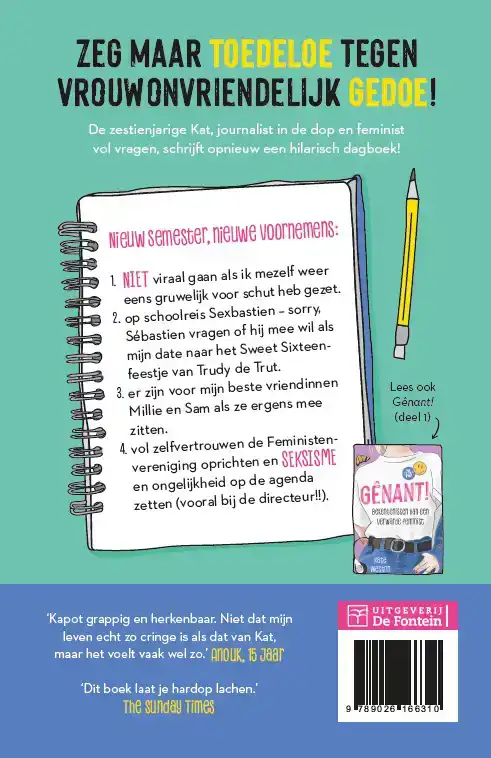 ZEG MAAR TOEDELOE TEGEN
VROUWONVRIENDELIJK GEDOE!
De zestienjarige Kat, journalist in de dop en feminist
vol vragen, schrijft opnieuw een hilarisch dagboek!
Nieuw semester, nieuwe voornemens:
1. NIET viraal gaan als ik mezelf weer
eens gruwelijk voor schut heb gezet.
2. op schoolreis Sexbastien – sorry,
Sébastien vragen of hij mee wil als
mijn date naar het Sweet Sixteen-
feestje van Trudy de Trut.
3. er zijn voor mijn beste vriendinnen
Millie en Sam als ze ergens mee
zitten.
4. vol zelfvertrouwen de Feministen-
vereniging oprichten en SEKSISME
en ongelijkheid op de agenda
zetten (vooral bij de directeur!!).
Lees ook
Gênant!
(deel 1)
GÊNANT!
Bekentenissen van een
verwarde feminist
Kate
Weston
‘Kapot grappig en herkenbaar. Niet dat mijn
leven echt zo cringe is als dat van Kat,
maar het voelt vaak wel zo.’ Anouk, 15 jaar
‘Dit boek laat je hardop lachen.’
The Sunday Times
UITGEVERIJ
De Fontein
9 789026 166310